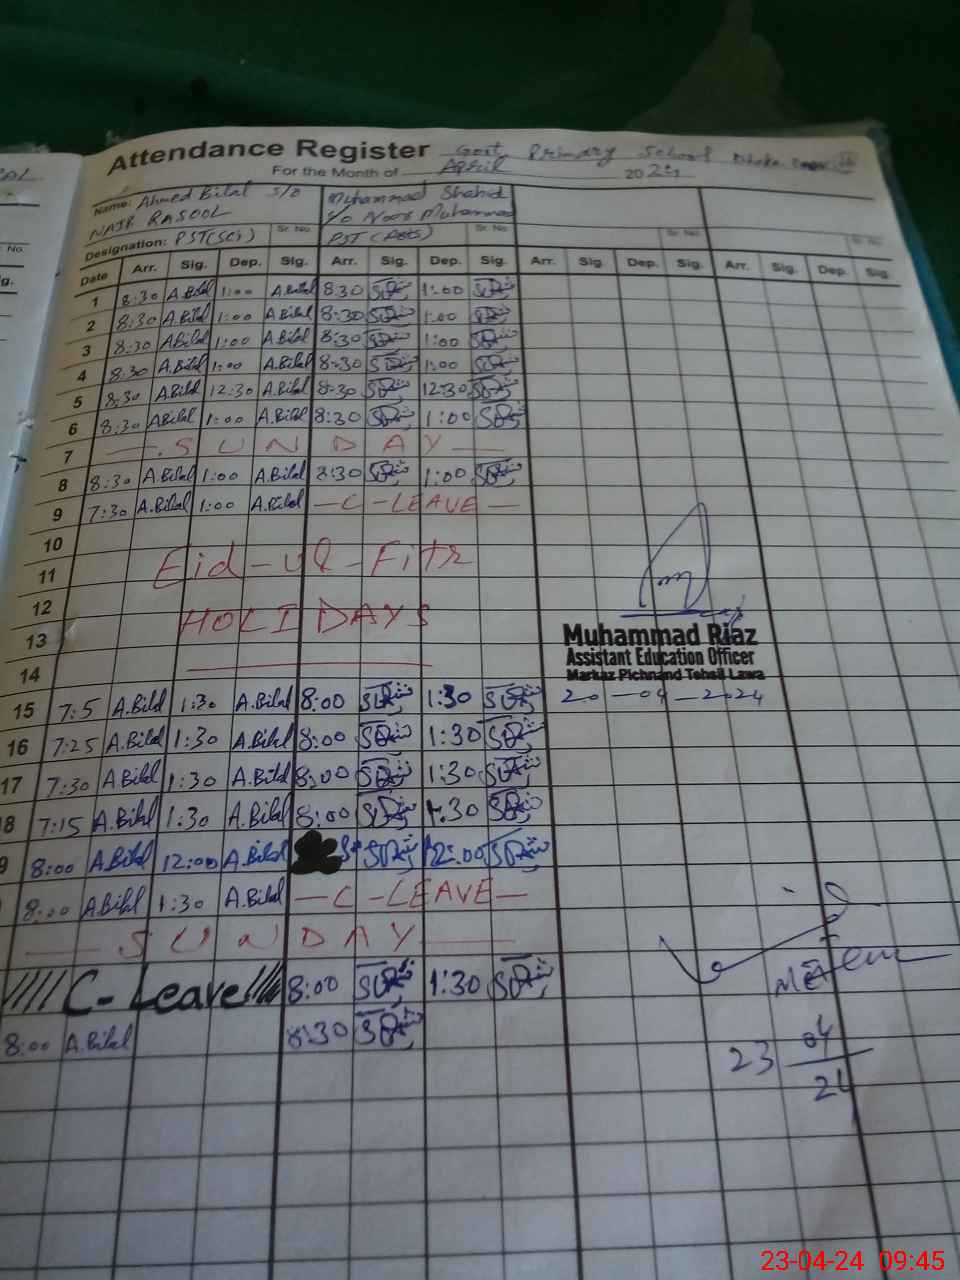 Attendance Register Govt Primary School Dhoke
For the Month of April 2024
Name: Ahmed Bilal S/O Muhammad Shahid
RASOOL S/o Noor Muhammad
Designation: PST(Sci) Sr. No. PST (Arts) Sr. No. Sr. No. Sr. No.
Date Arr. Sig. Dep. Sig. Arr. Sig. Dep. Sig. Arr. Sig. Dep. Sig. Arr. Sig. Dep. Sig.
1 8:30 A.Bilal 1:00 A.Bilal 8:30 1:00
2 8:30 A.Bilal 1:00 A.Bilal 8:30 1:00
3 8:30 A.Bilal 1:00 A.Bilal 8:30 1:00
4 8:30 A.Bilal 1:00 A.Bilal 8:30 1:00
5 8:30 A.Bilal 12:30 A.Bilal 8:30 12:30
6 8:30 A.Bilal 1:00 A.Bilal 8:30 1:00
7 — SUNDAY —
8 8:30 A.Bilal 1:00 A.Bilal 8:30 1:00
9 7:30 A.Bilal 1:00 A.Bilal — C - LEAVE —
10
11 Eid-ul-Fitr
12
13 HOLIDAYS
14
Muhammad Riaz
Assistant Education Officer
Markaz Pichnand Tehsil Lawa
20-04-2024
15 7:5 A.Bilal 1:30 A.Bilal 8:00 1:30
16 7:25 A.Bilal 1:30 A.Bilal 8:00 1:30
17 7:30 A.Bilal 1:30 A.Bilal 8:00 1:30
8 7:15 A.Bilal 1:30 A.Bilal 8:00 1:30
9 8:00 A.Bilal 12:00 A.Bilal 12:00
8:00 A.Bilal 1:30 A.Bilal — C - LEAVE —
— SUNDAY —
C-Leave 8:00 1:30
8:00 A.Bilal 8:30
MEA
23 04
24
23-04-24 09:45